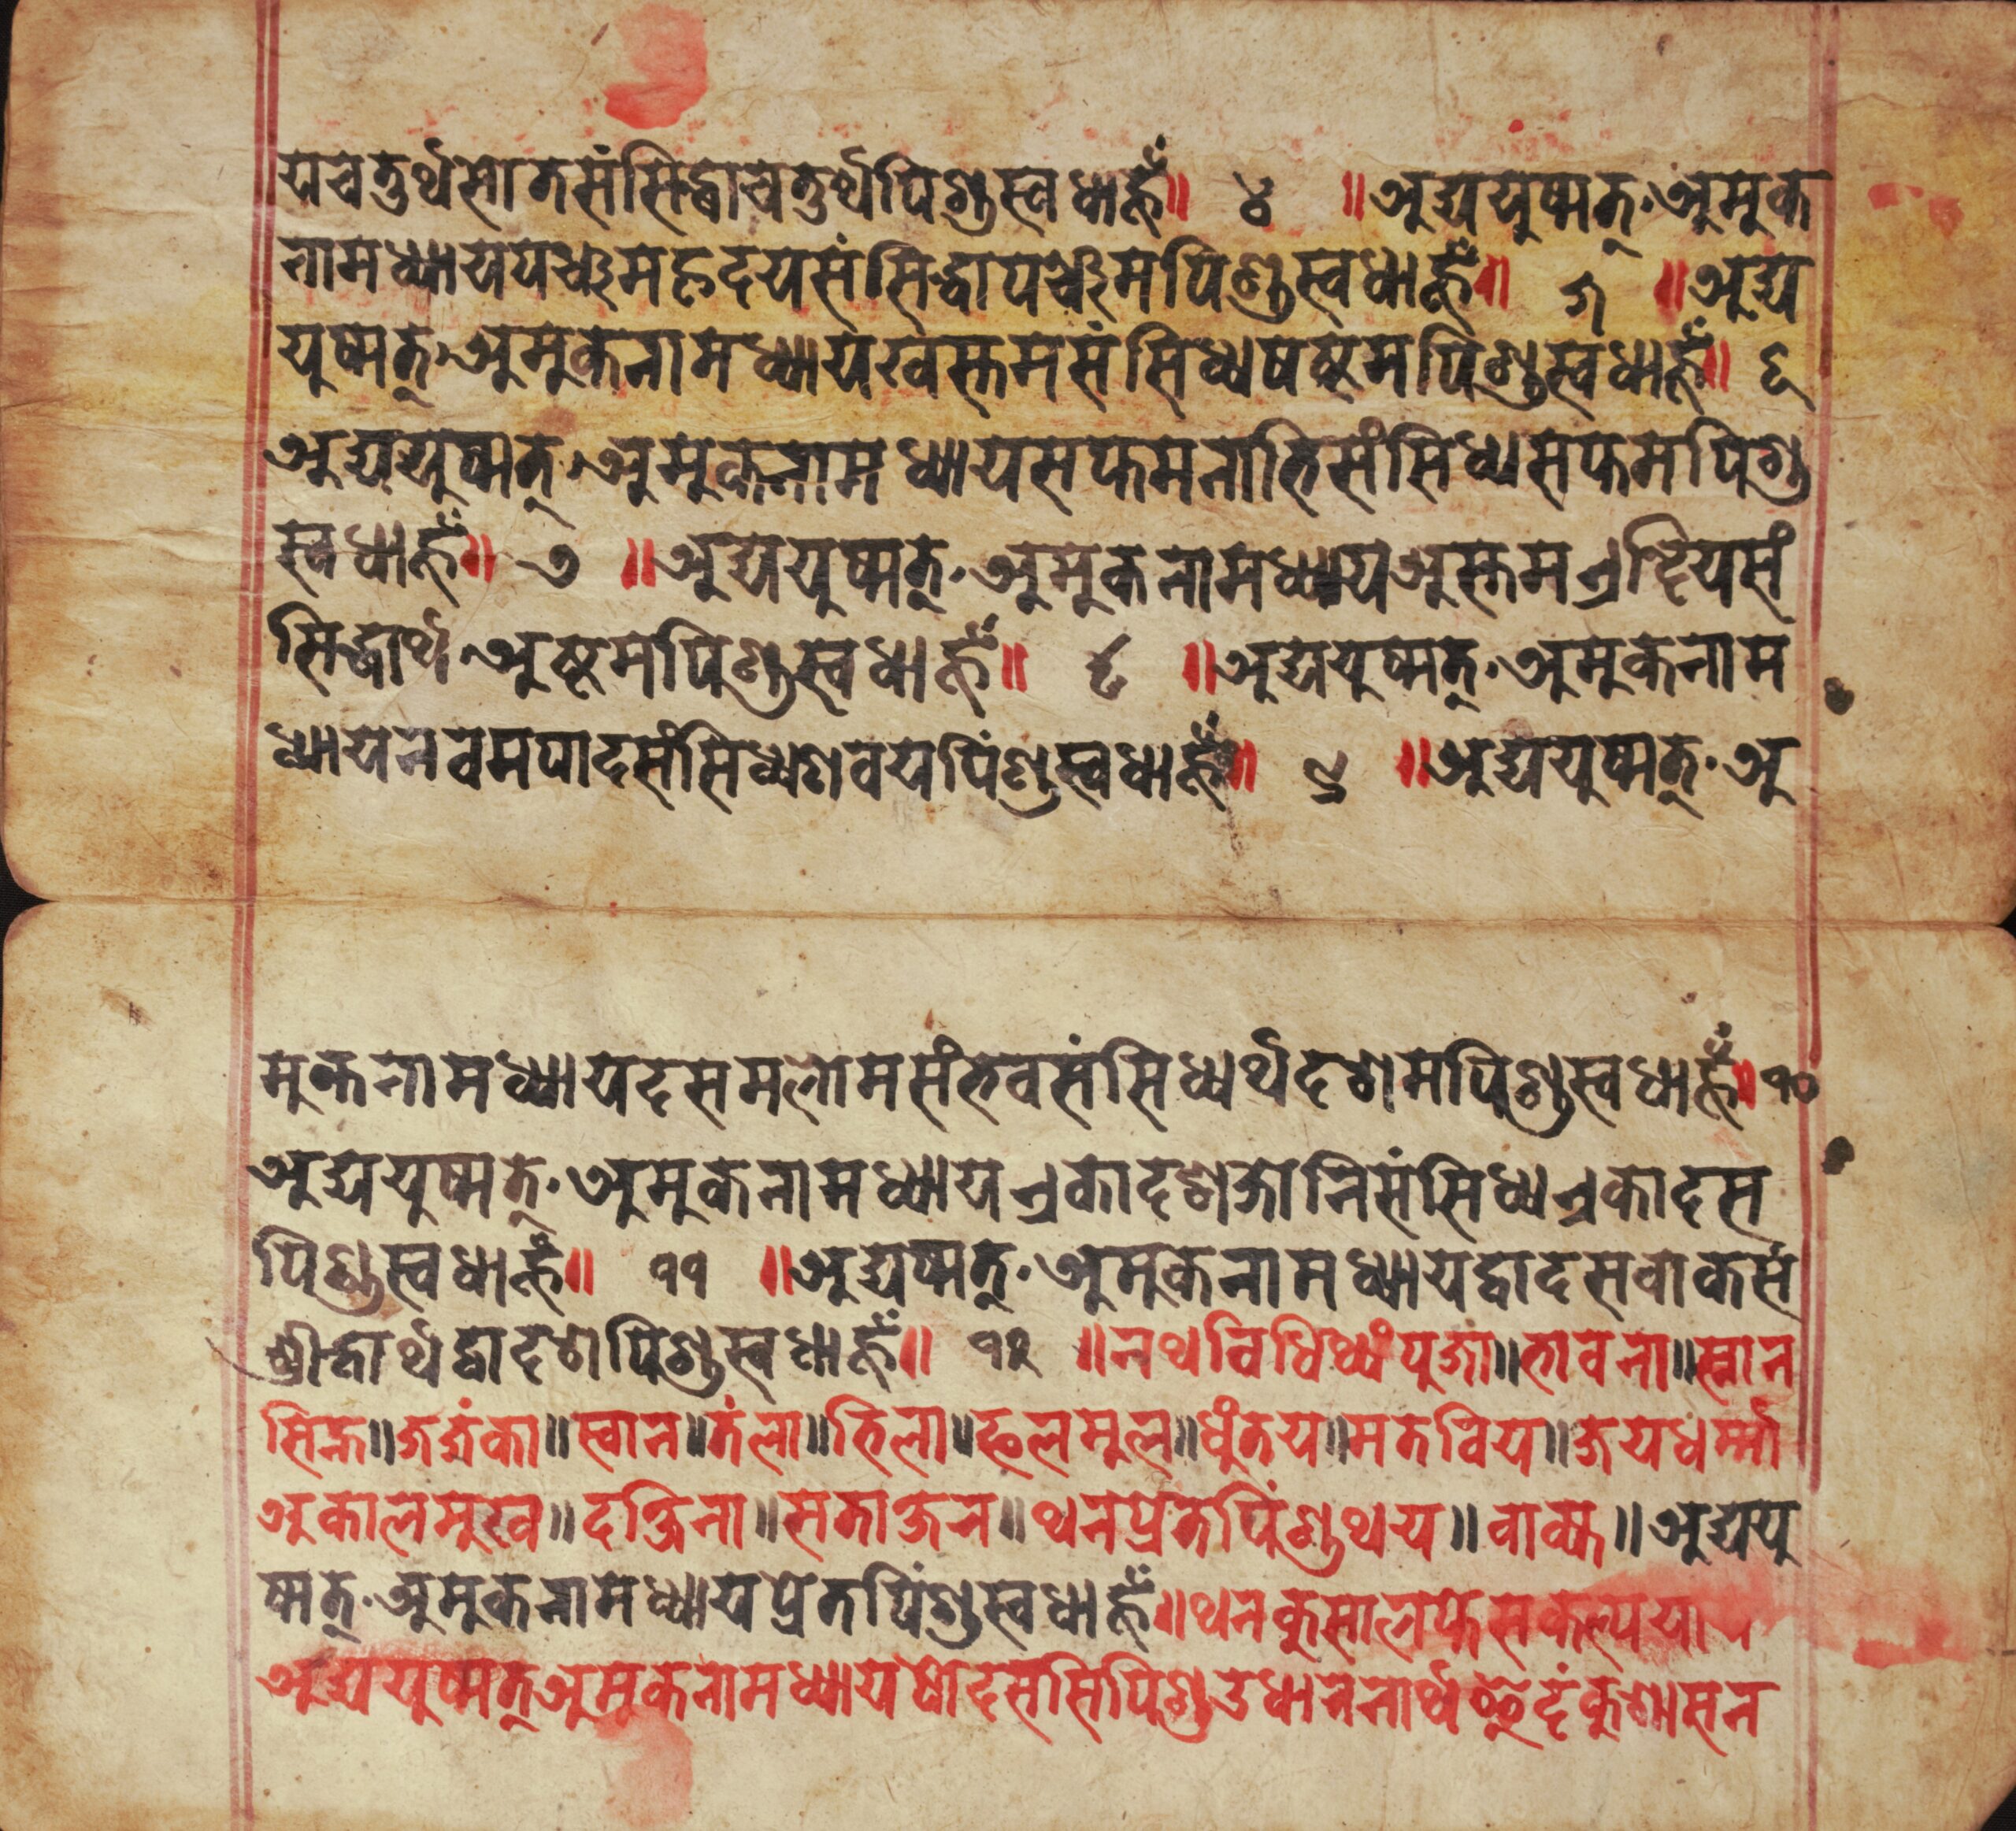 यचतुर्थसोतसंसिद्धाचतुर्थपिण्डस्वधाह्नँ॥ ४ ॥अद्ययुष्मत्·अमुक
नामध्यायपञ्चमहृदयसंसिद्धापञ्चमपिण्डस्वधाह्नँ॥ ५ ॥अद्य
युष्मत्·अमुकनामध्यायखस्तमसंसिध्यषष्टमपिण्डस्वधाह्नँ॥ ६
अद्ययुष्मत्·अमुकनामध्यायसप्तमनाभिसंसिध्यसप्तमपिण्ड
स्वधाह्नँ॥ ७ ॥अद्ययुष्मत्·अमुकनामध्यायअस्तमएष्टियसं
सिद्धार्थ·अष्टमपिण्डस्वधाह्नँ॥ ८ ॥अद्ययुष्मत्·अमुकनाम
ध्यायेनवमपादसंसिध्यणवयपिंण्डस्वधाह्नँ॥ ९ ॥अद्ययुष्मत्·अ
मुकनामध्यायदसमलोमसंभवसंसिध्यर्थदशमपिण्डस्वधाह्नँ॥१०
अद्ययुष्मत्·अमुकनामध्यायएकादशजोनिसंसिध्यएकादस
पिण्डस्वधाह्नँ॥ ११ ॥अद्यष्मत्·अमुकनामध्यायद्वादसवाकसं
द्वादशपिण्डस्वधाह्नँ॥ १२ ॥नथविधिथ्यंपुजा॥भावना॥स्नान
सिह्न॥जजंका॥स्वान॥तंला॥भिला॥फलमुल॥धुंतय॥मतविय॥जयधर्म्मा
अकालमुखे॥दक्षिना॥सताक्षन॥थनप्रेतपिंण्डथय॥वाक्य॥अद्ययु
ष्मत्·अमुकनामध्यायप्रेतपिंण्डस्वधाह्नँ॥थनकुसालप्तेसकल्पया
अद्ययुष्मत्अमुकनामध्यायषोदससपिण्डउधाननार्थ कुशासन